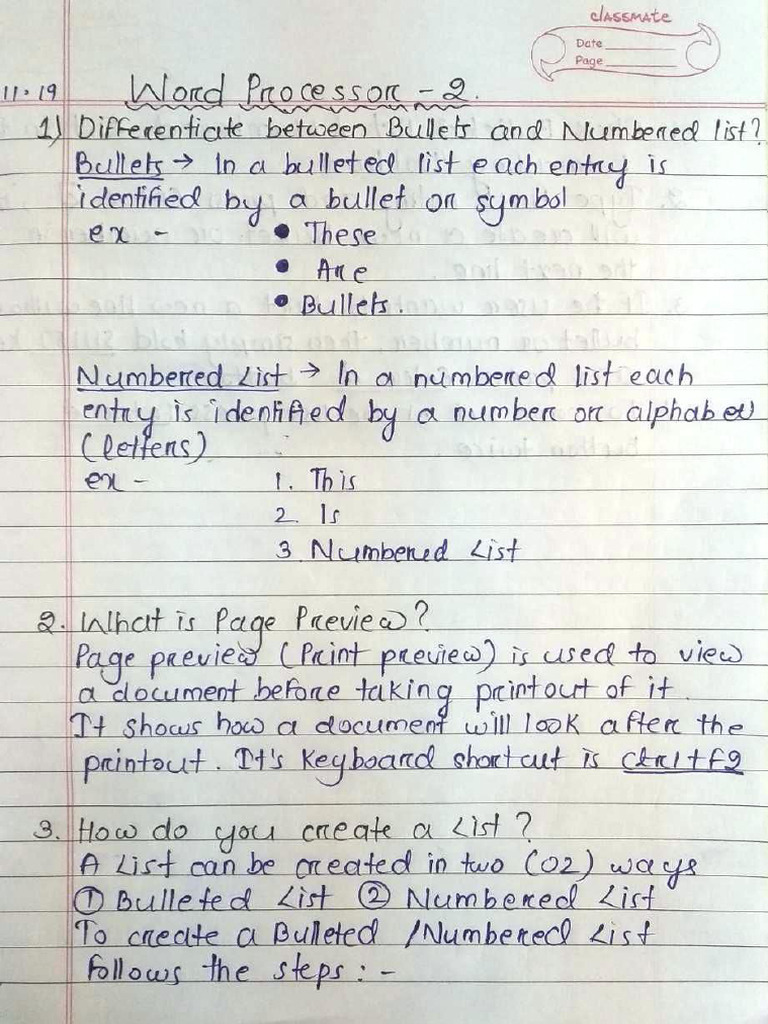 classmate
Date
Page
11.19
Word Processor - 2.
1) Differentiate between Bullets and Numbered list?
Bullets → In a bulleted list each entry is
identified by a bullet or symbol
ex -
• These
• Are
• Bullets.
Numbered List → In a numbered list each
entry is identified by a number or alphabet
(letters)
ex -
1. This
2. Is
3 Numbered List
2. What is Page Preview?
Page preview (Print preview) is used to view
a document before taking printout of it.
It shows how a document will look after the
printout. It's keyboard shortcut is ctrl+f2
3. How do you create a List?
A List can be created in two (02) ways
① Bulleted List ② Numbered List
To create a Bulleted /Numbered List
follows the steps : -